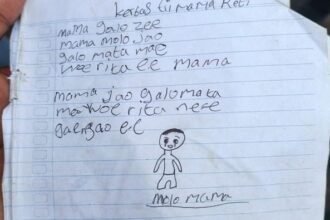 kertas ti mama Reti
mama galo zee
mama molo jao
galo mata mae
woe rita ee mama
mama jao galo mata
ma woe rita nere
gaergao e.e
molo mama